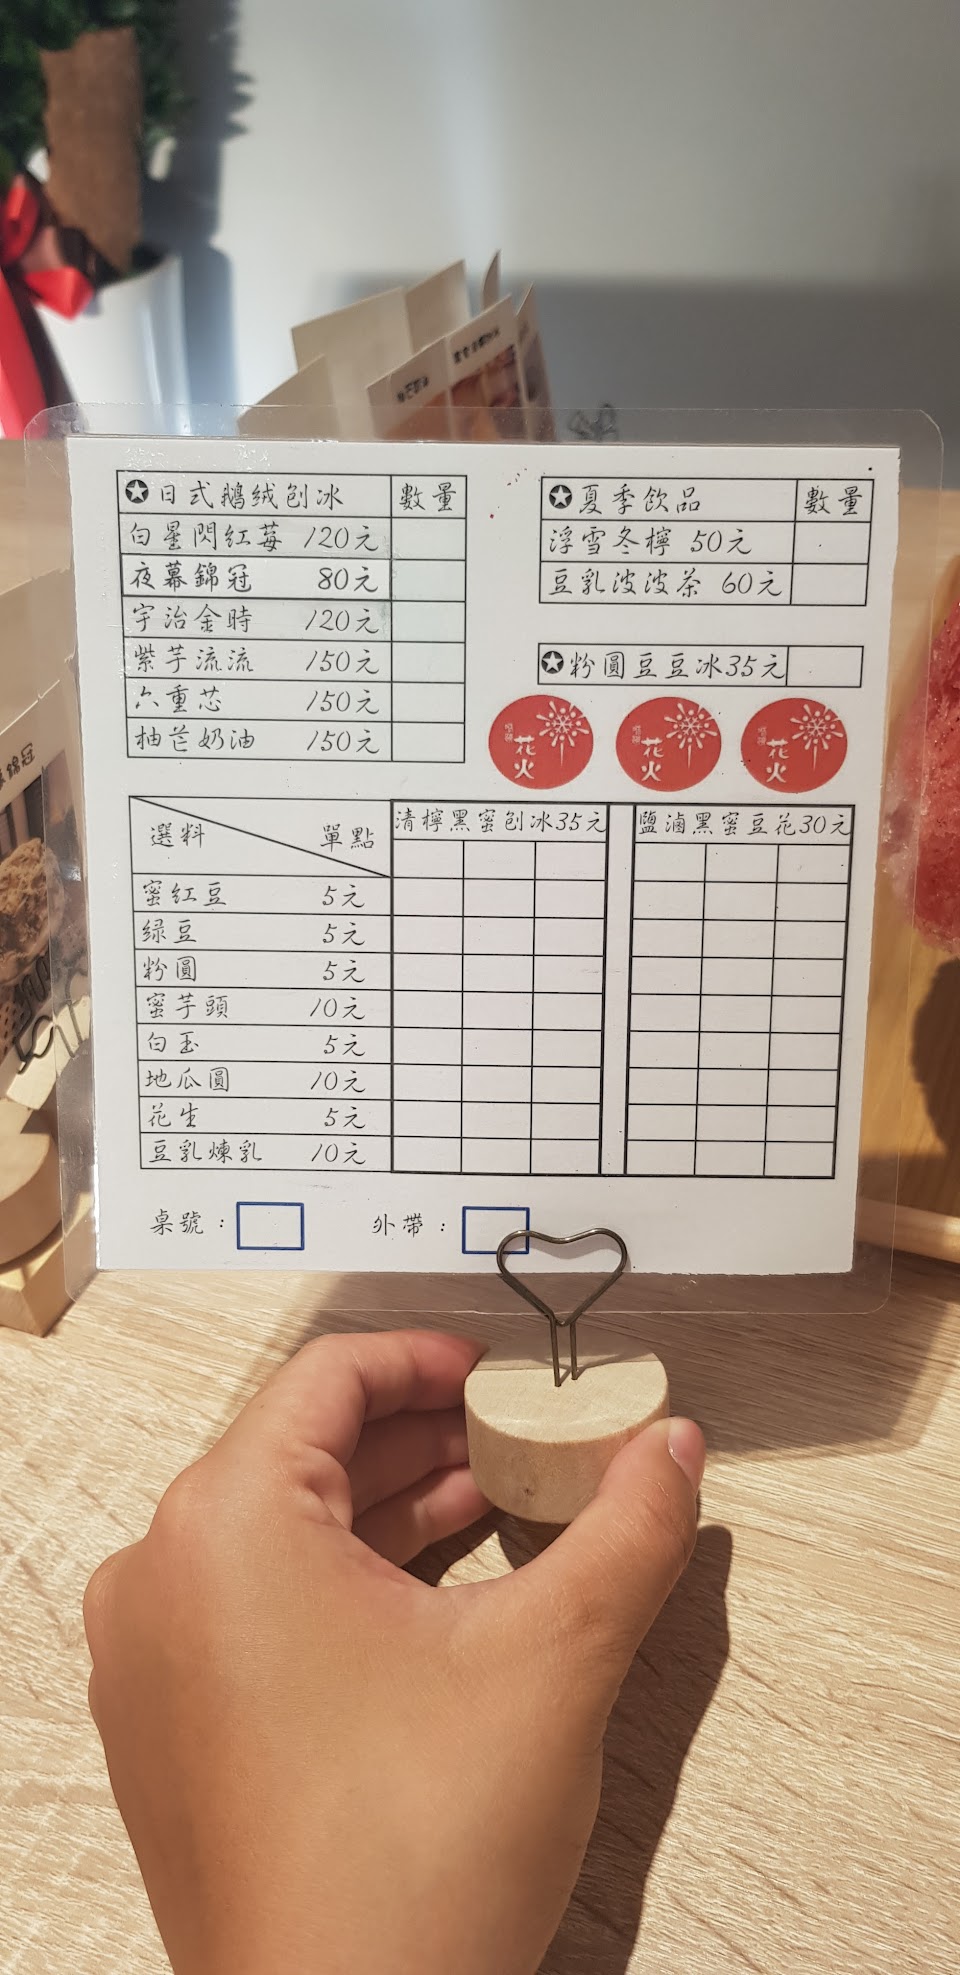 ✪日式鵝絨刨冰 數量
白星閃紅莓 120元
夜幕錦冠 80元
宇治金時 120元
紫芋流流 150元
六重芯 150元
柚芒奶油 150元
✪夏季飲品 數量
浮雪冬檸 50元
豆乳波波茶 60元
✪粉圓豆豆冰35元
花火
花火
花火
選料 單點 清檸黑蜜刨冰35元 鹽滷黑蜜豆花30元
蜜紅豆 5元
綠豆 5元
粉圓 5元
蜜芋頭 10元
白玉 5元
地瓜圓 10元
花生 5元
豆乳煉乳 10元
桌號： 外帶：
錦冠